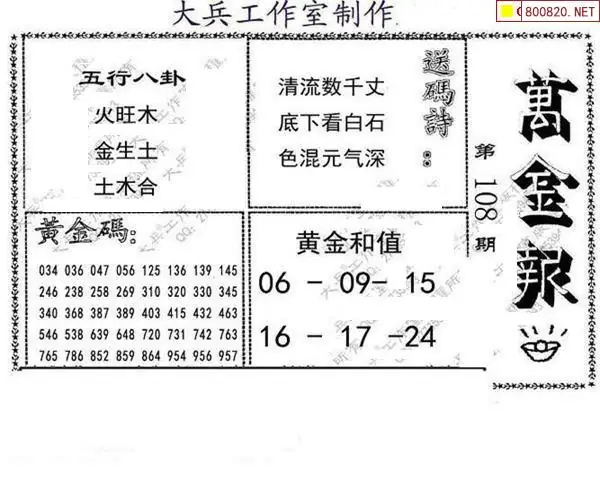 大兵工作室制作
800820.NET
五行八卦
火旺木
金生土
土木合
送码詩：
清流数千丈
底下看白石
色混元气深
萬金报
第108期
黄金碼：
034 036 047 056 125 136 139 145
246 238 258 269 310 320 330 345
340 368 387 389 403 415 432 463
546 538 639 648 720 731 742 763
765 786 852 859 864 954 956 957
黄金和值
06 - 09 - 15
16 - 17 -24